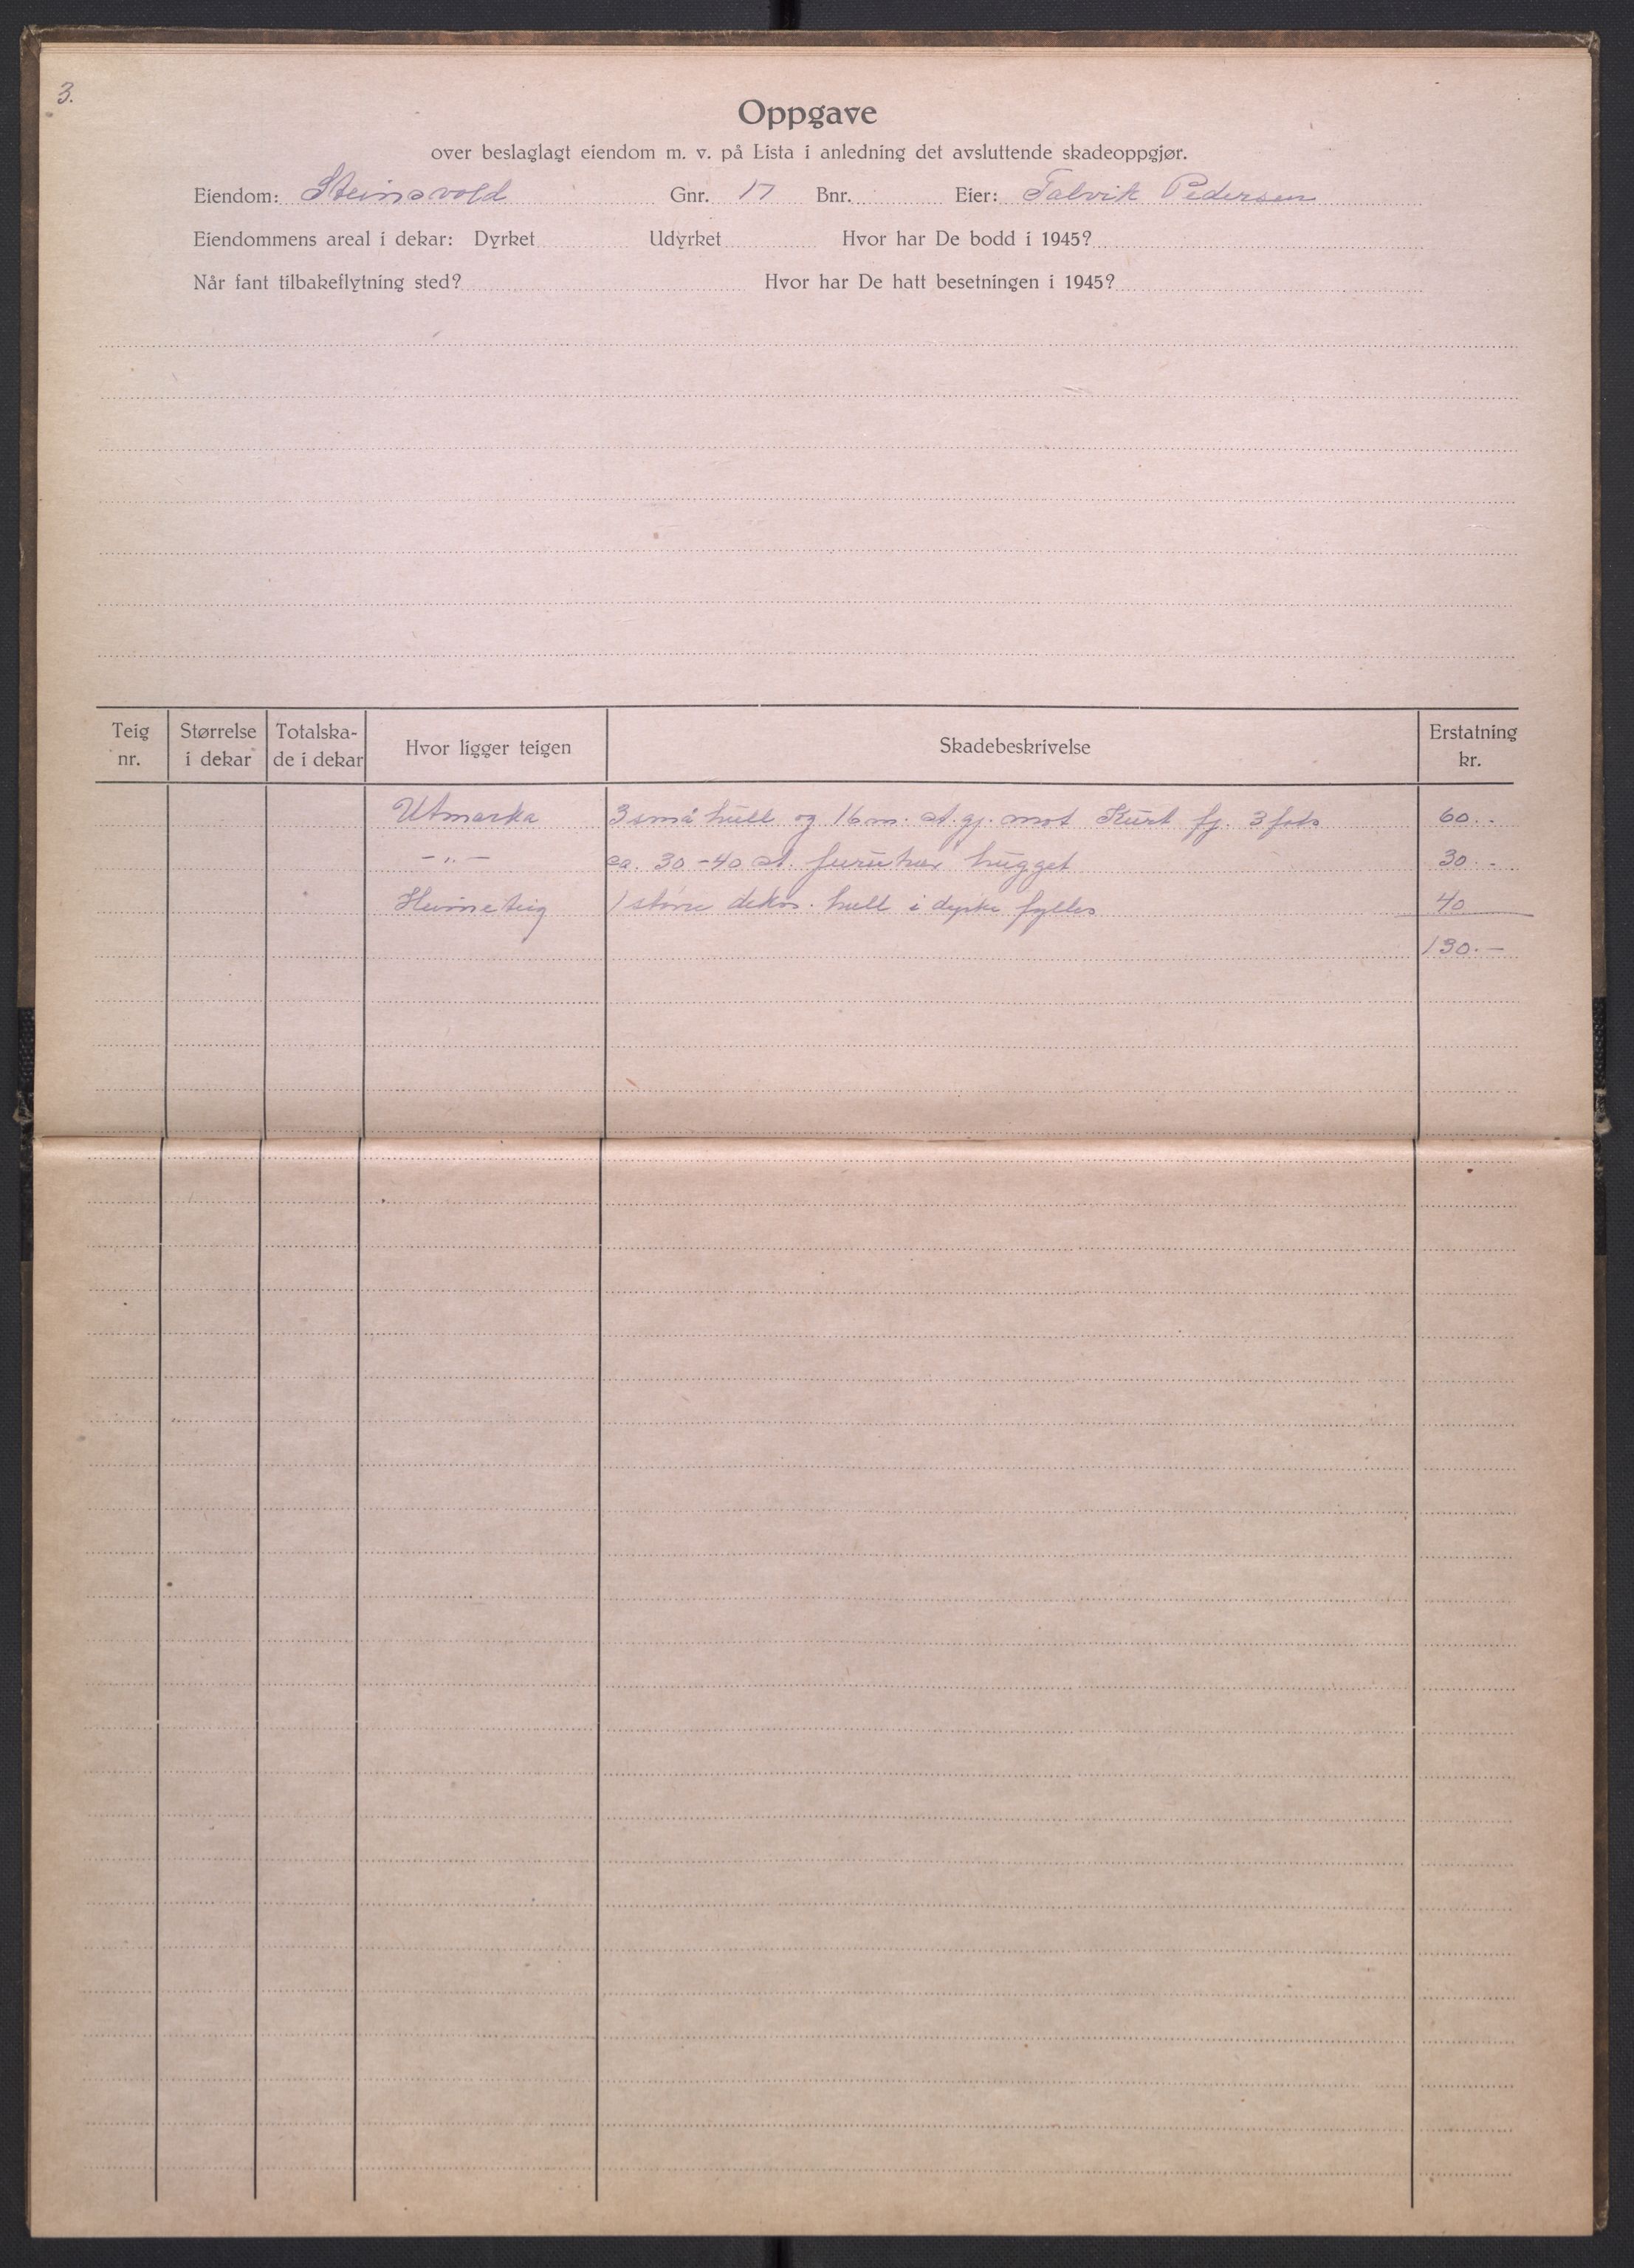 3.
Oppgave
over beslaglagt eiendom m. v. på Lista i anledning det avsluttende skadeoppgjør.
Eiendom: Steinsvold Gnr. 17 Bnr. Eier: Talvik Pedersen
Eiendommens areal i dekar: Dyrket Udyrket Hvor har De bodd i 1945?
Når fant tilbakeflytning sted? Hvor har De hatt besetningen i 1945?
Teig nr. Størrelse i dekar Totalska-de i dekar Hvor ligger teigen Skadebeskrivelse Erstatning kr.
Utmarka 3 små hull og 16 m. st. gj. mot Kurt fj. 60.-
-"- ca. 30-40 st. furutrær hugget 30.-
Heimeteig 1 større dekn. hull i dyrke fylles 40
130.-